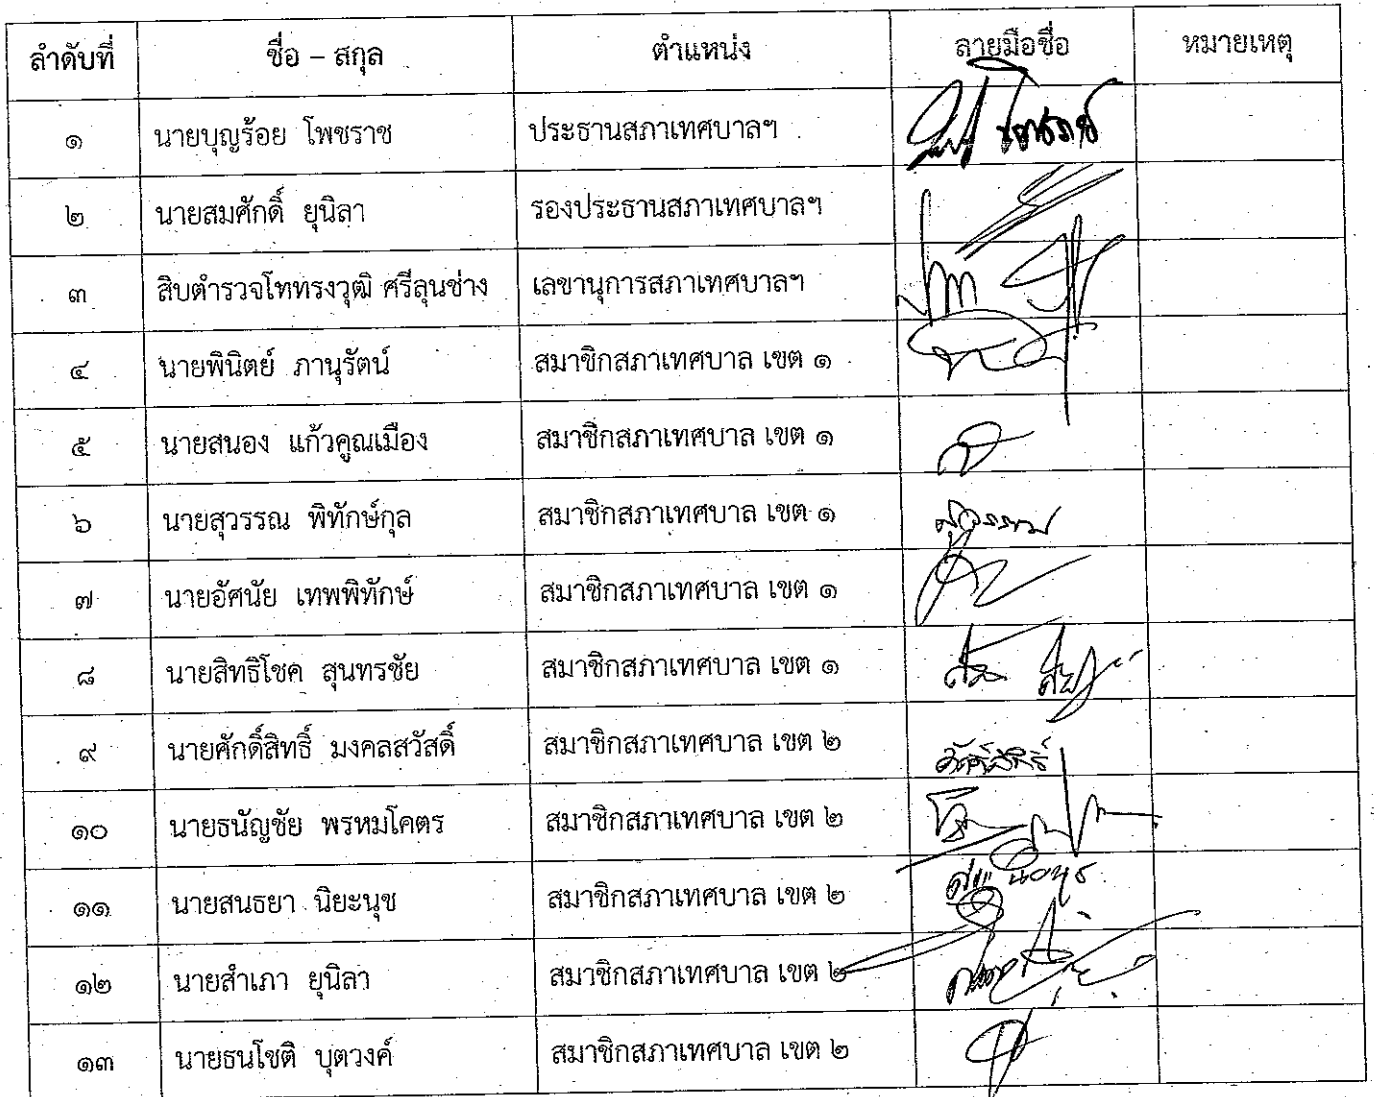 ลำดับที่ ชื่อ – สกุล ตำแหน่ง ลายมือชื่อ หมายเหตุ
๑ นายบุญร้อย โพชราช ประธานสภาเทศบาลฯ
๒ นายสมศักดิ์ ยุนิลา รองประธานสภาเทศบาลฯ
๓ สิบตำรวจโททรงวุฒิ ศรีลุนช่าง เลขานุการสภาเทศบาลฯ
๔ นายพินิตย์ ภานุรัตน์ สมาชิกสภาเทศบาล เขต ๑
๕ นายสนอง แก้วคูณเมือง สมาชิกสภาเทศบาล เขต ๑
๖ นายสุวรรณ พิทักษ์กุล สมาชิกสภาเทศบาล เขต ๑ สุวรรณ
๗ นายอัศนัย เทพพิทักษ์ สมาชิกสภาเทศบาล เขต ๑
๘ นายสิทธิโชค สุนทรชัย สมาชิกสภาเทศบาล เขต ๑
๙ นายศักดิ์สิทธิ์ มงคลสวัสดิ์ สมาชิกสภาเทศบาล เขต ๒ ศักดิ์สิทธิ์
๑๐ นายธนัญชัย พรหมโคตร สมาชิกสภาเทศบาล เขต ๒
๑๑ นายสนธยา นิยะนุช สมาชิกสภาเทศบาล เขต ๒
๑๒ นายสำเภา ยุนิลา สมาชิกสภาเทศบาล เขต ๒
๑๓ นายธนโชติ บุตวงค์ สมาชิกสภาเทศบาล เขต ๒